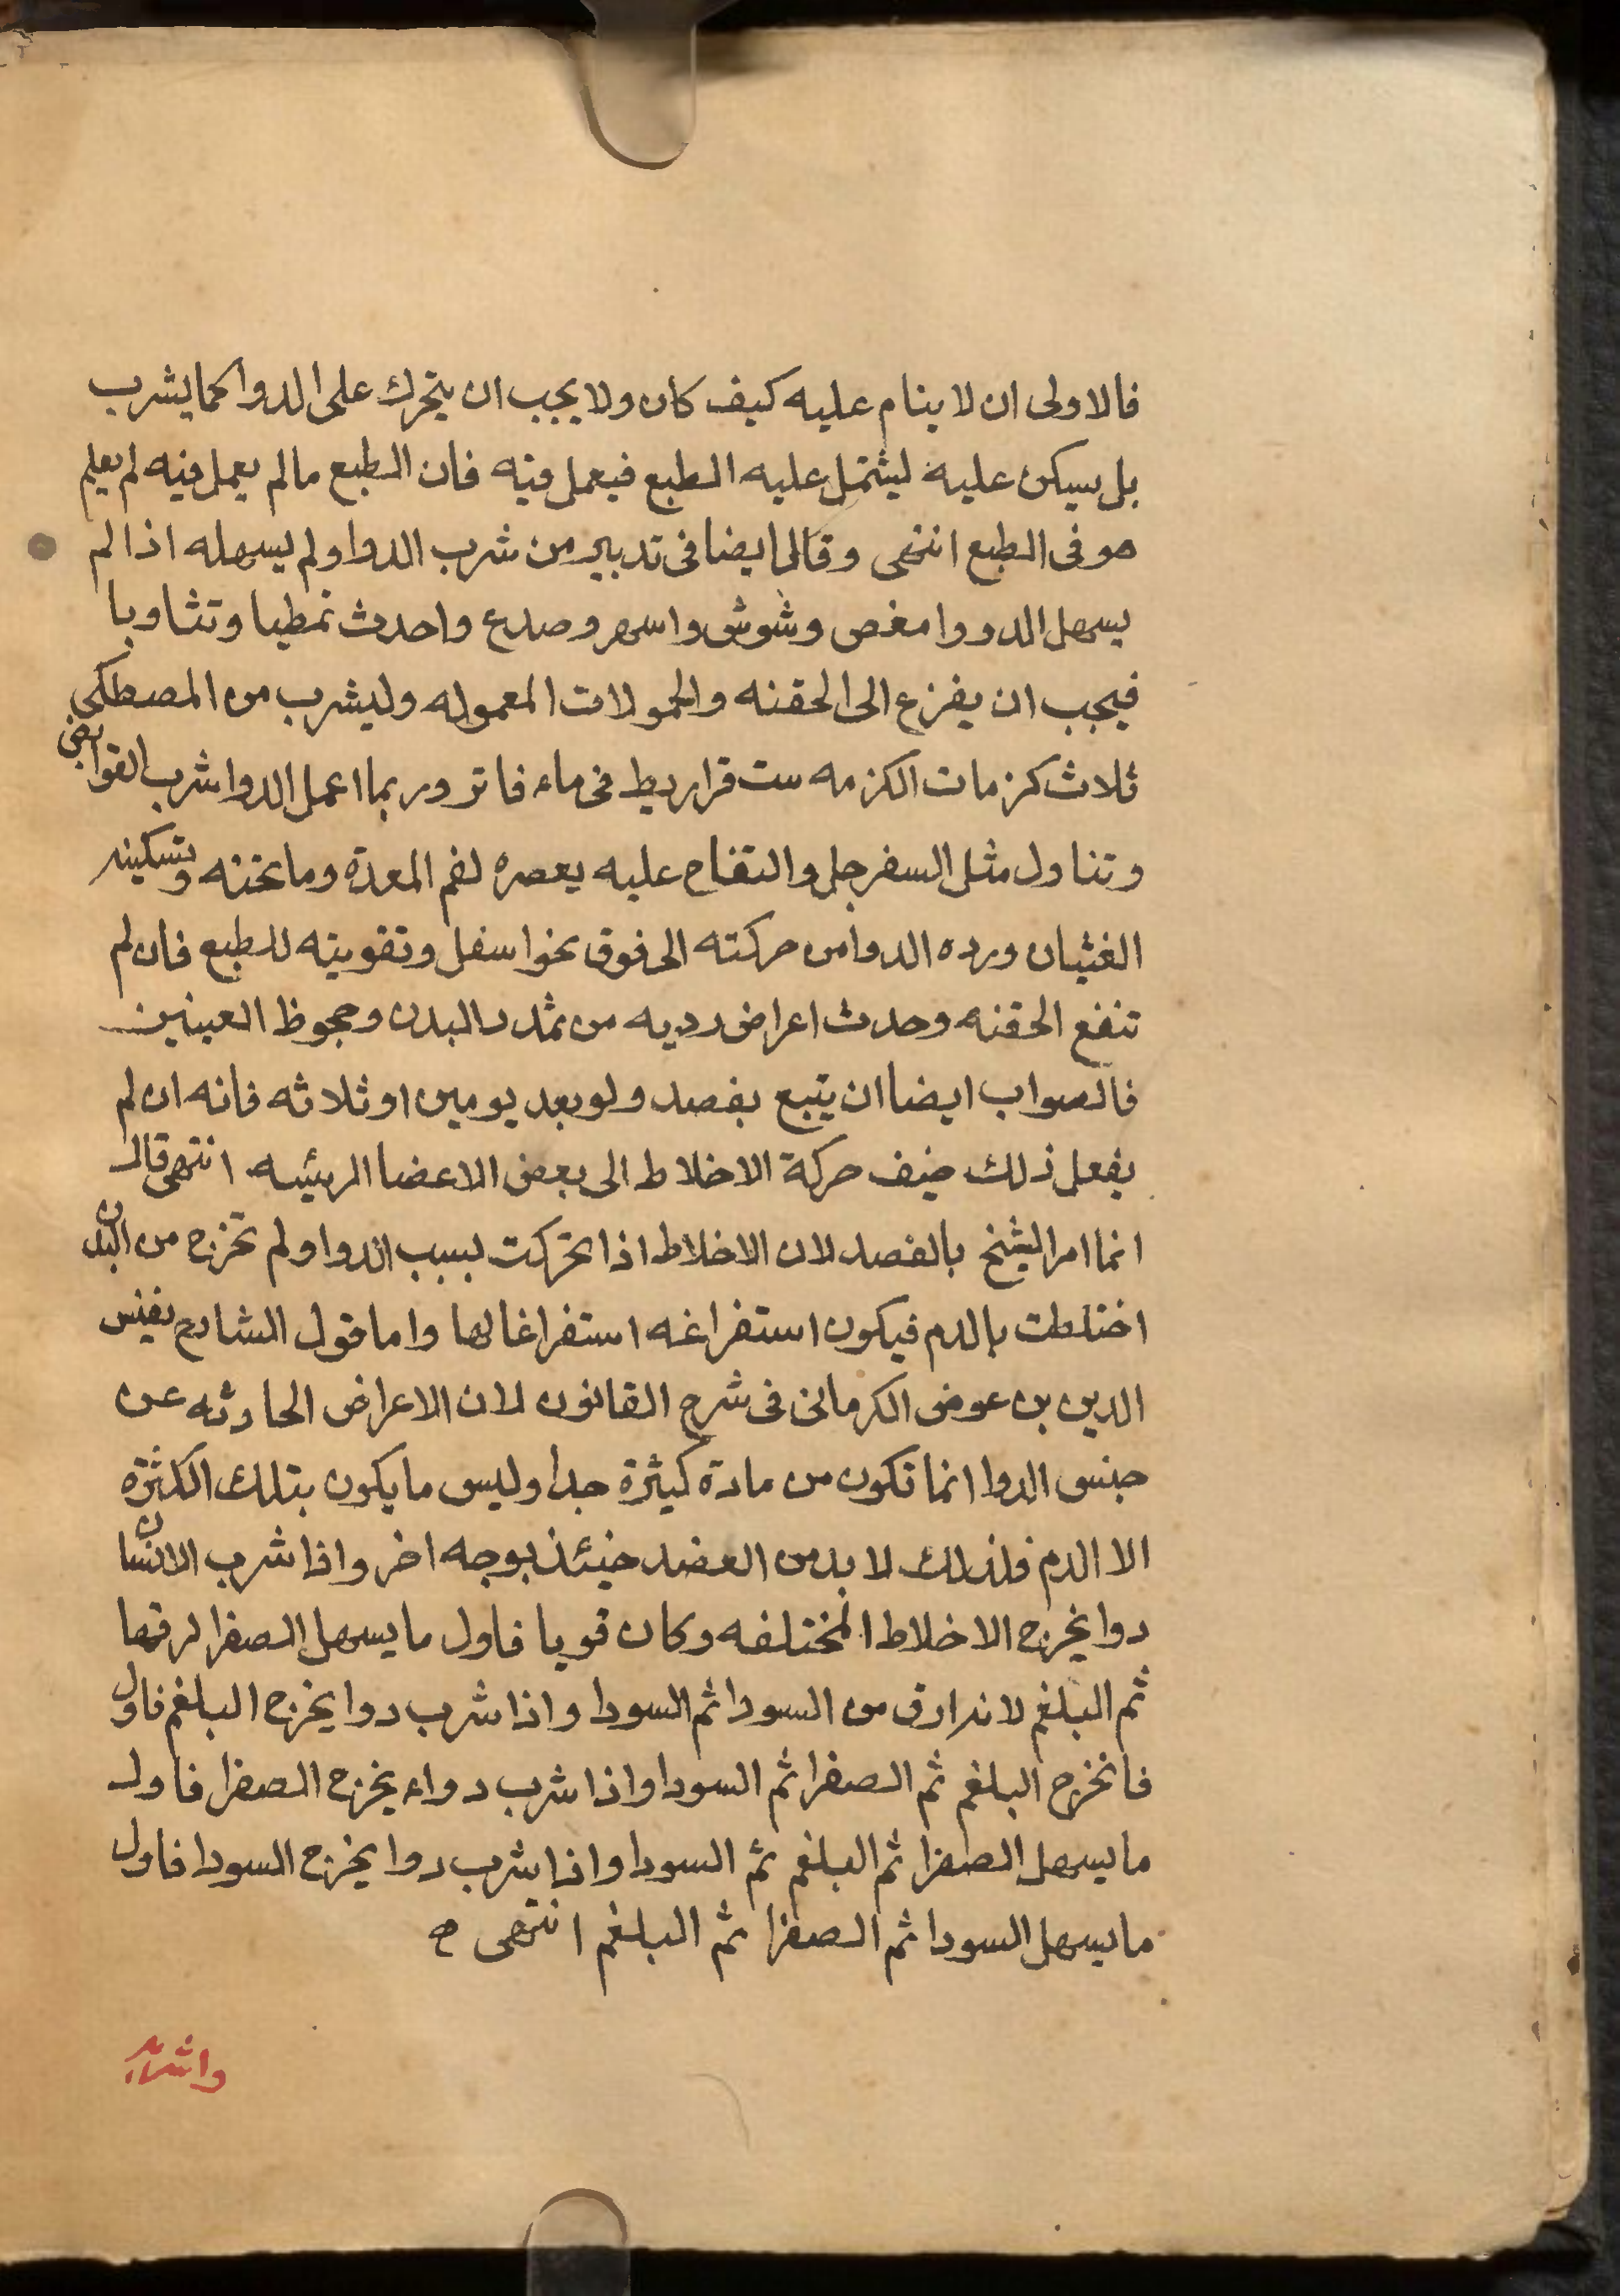 فالاولى ان لا ينام عليه كيف كان ولا يجب ان يتحرك على الدوا كما يشرب
بل يسكن عليه ليشتمل عليه الطبع فيعمل فيه فان الطبع ما لم يعمل فيه لم يعلم
هو فى الطبع انتهى وقال ايضا فى تدبير من شرب الدوا ولم يسهله اذا لم
يسهل الدووا مغص وشوش واسهر وصدع واحدث تمطيا وتثاوبا
فيجب ان يفزع الى الحقنه والحمولات المعموله وليشرب من المصطكى
ثلاث كزمات الكزمه ست قراريط فى ماء فاتر وربما اعمل الدوا شرب القوابض
وتناول مثل السفرجل والتفاح عليه يعصره لفم المعدة وما تحته وتسكينه
الغثيان ورده الدوا من حركته الى فوق نحوا سفل وتقويته للطبع فان لم
تنفع الحقنه وحدث اعراض رديه من تمدد البدن وجحوظ العينين
فالصواب ايضا ان يتبع بفصد ولو بعد يومين او ثلاثه فانه ان لم
يفعل ذلك خيف حركة الاخلاط الى بعض الاعضا الرئيسه انتهى قال
انما امر الشيخ بالفصد لان الاخلاط اذا تحركت بسبب الدوا ولم تخرج من البدن
اختلطت بالدم فيكون استفراغه استفراغا لها واما قول الشارح نفيس
الدين بن عوض الكرمانى فى شرح القانون لان الاعراض الحادثه عن
جنس الدوا انما تكون من مادة كثيرة جدا وليس ما يكون بتلك الكثره
الا الدم فلذلك لا بد من الفصد حينئذ بوجه اخر واذا شرب الانسان
دوا يخرج الاخلاط المختلفه وكان قويا فاول ما يسهل الصفرا لرقتها
ثم البلغم لانه ارق من السودا ثم السودا واذا شرب دوا يخرج البلغم فاول
فانخرج البلغم ثم الصفرا ثم السودا واذا شرب دواء يخرج الصفرا فاول
ما يسهل الصفرا ثم البلغم ثم السودا واذا شرب دوا يخرج السودا فاول
ما يسهل السودا ثم الصفرا ثم البلغم انتهى